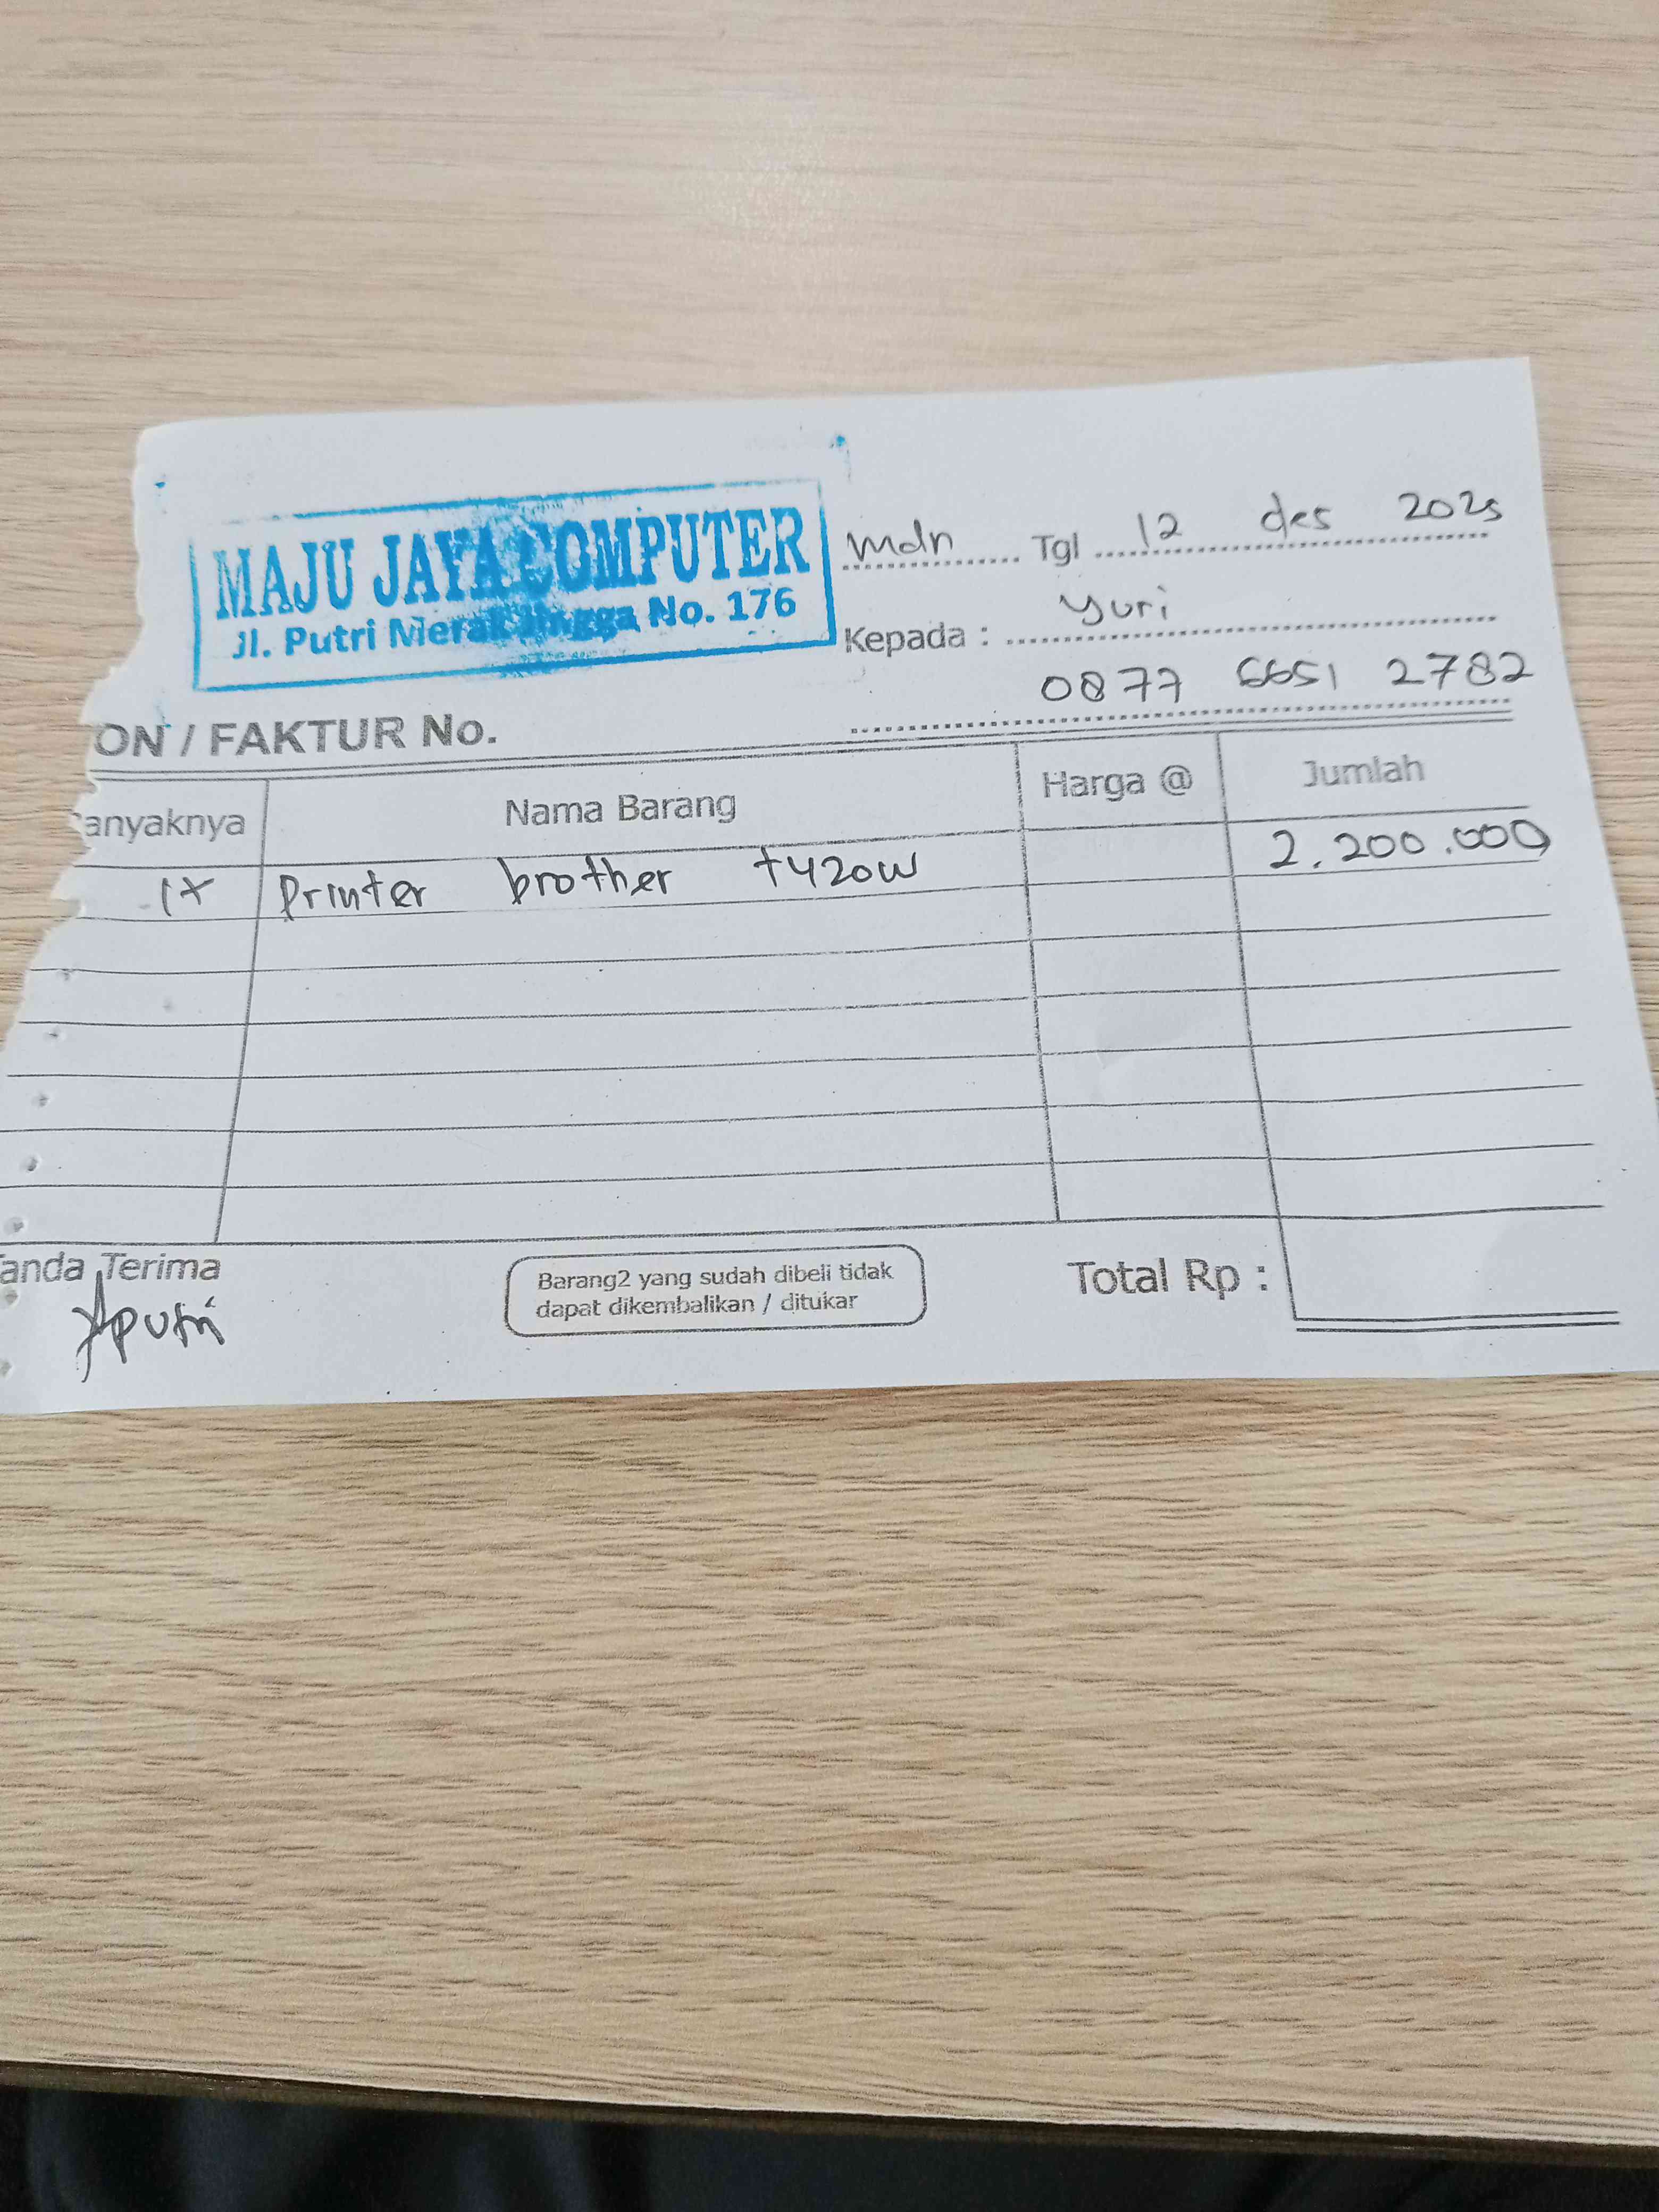 MAJU JAYA COMPUTER
Jl. Putri Merak Jingga No. 176
mdn Tgl 12 des 2025
Kepada : Yuri
0877 6651 2782
ON / FAKTUR No.
anyaknya Nama Barang Harga @ Jumlah
1x Printer brother t420w 2.200.000
anda Terima
Aputri
Barang2 yang sudah dibeli tidak
dapat dikembalikan / ditukar
Total Rp :